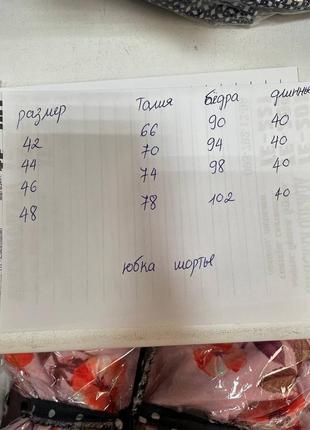 размер талия бёдра длинны
42 66 90 40
44 70 94 40
46 74 98 40
48 78 102 40
юбка шорты